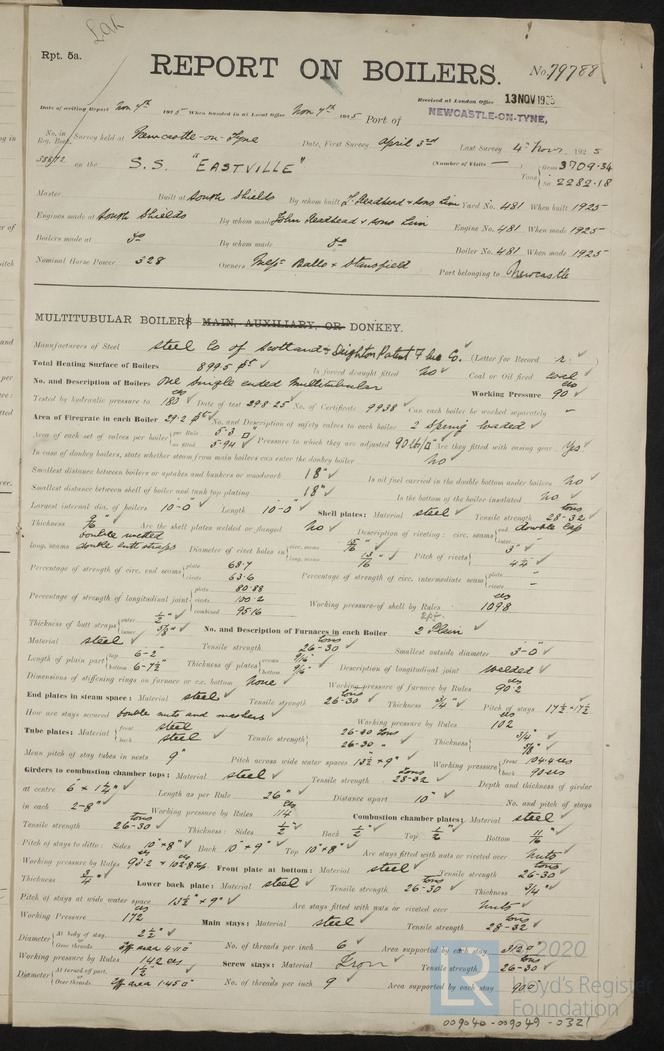 Lak
Rpt. 5a.
REPORT ON BOILERS.
No. 79788
Received at London Office 13 NOV 1925
Date of writing Report Nov 7th 1925 When handed in at Local Office Nov 7th 1925 Port of NEWCASTLE-ON-TYNE,
No. in Reg. Book. Survey held at Newcastle-on-Tyne Date, First Survey April 3rd Last Survey 4th Nov. 1925
on the S.S. "EASTVILLE" (Number of Visits — ) Tons Gross 3709.34 Net 2282.18
Master Built at South Shields By whom built J. Readhead & Sons Lim Yard No. 481 When built 1925
Engines made at South Shields By whom made John Readhead & Sons Lim Engine No. 481 When made 1925
Boilers made at Do By whom made Do Boiler No. 481 When made 1925
Nominal Horse Power 328 Owners Messrs Balls & Stansfield Port belonging to Newcastle
MULTITUBULAR BOILERS MAIN, AUXILIARY, OR DONKEY.
Manufacturers of Steel Steel Co of Scotland & Deighton Patent Flue Co. (Letter for Record r. )
Total Heating Surface of Boilers 899.5 Is forced draught fitted No Coal or Oil fired coal
No. and Description of Boilers One Single ended Multitubular Working Pressure 90 lbs
Tested by hydraulic pressure to 180 lbs Date of test 29.8.25 No. of Certificate 9938 Can each boiler be worked separately —
Area of Firegrate in each Boiler 29.2 No. and Description of safety valves to each boiler 2 Spring loaded
Area of each set of valves per boiler per Rule 5.3 as fitted 5.94 Pressure to which they are adjusted 90 lb/□" Are they fitted with easing gear Yes
In case of donkey boilers, state whether steam from main boilers can enter the donkey boiler No
Smallest distance between boilers or uptakes and bunkers or woodwork 18" Is oil fuel carried in the double bottom under boilers No
Smallest distance between shell of boiler and tank top plating 18" Is the bottom of the boiler insulated No
Largest internal dia. of boilers 10-0" Length 10-0" Shell plates: Material steel Tensile strength 28-32 tons
Thickness 9/16 Are the shell plates welded or flanged No Description of riveting: circ. seams end double lap inter
long. seams double riveted double butt straps Diameter of rivet holes in circ. seams 15/16 long. seams 13/16 Pitch of rivets 3" 4 1/4
Percentage of strength of circ. end seams plate 68.7 rivets 63.6 Percentage of strength of circ. intermediate seam plate — rivets —
Percentage of strength of longitudinal joint plate 80.88 rivets 100.2 combined 95.16 Working pressure of shell by Rules 109.8 lbs
Thickness of butt straps outer 1/2" inner 5/8" No. and Description of Furnaces in each Boiler 2 Plain
Material steel Tensile strength 26-30 tons Smallest outside diameter 3-0"
Length of plain part top 6-2" bottom 6-7 1/2" Thickness of plates crown 9/16" bottom 9/16 Description of longitudinal joint welded
Dimensions of stiffening rings on furnace or c.c. bottom None Working pressure of furnace by Rules 90.2 lbs
End plates in steam space: Material steel Tensile strength 26-30 tons Thickness 3/4" Pitch of stays 17 1/2 × 17 1/2
How are stays secured double nuts and washers Working pressure by Rules 102 lbs
Tube plates: Material front steel back steel Tensile strength 26-30 tons 26-30 " Thickness 3/4" 5/8"
Mean pitch of stay tubes in nests 9" Pitch across wide water spaces 13 1/2 × 9" Working pressure front 104.4 lbs back 90 lbs
Girders to combustion chamber tops: Material steel Tensile strength 28-32 tons Depth and thickness of girder
at centre 6" × 1 1/4" Length as per Rule 26" Distance apart 10" No. and pitch of stays
in each 2-8" Working pressure by Rules 114 lbs Combustion chamber plates: Material steel
Tensile strength 26-30 tons Thickness: Sides 1/2" Back 1/2" Top 1/2" Bottom 11/16
Pitch of stays to ditto: Sides 10" × 8" Back 10" × 9" Top 10" × 8" Are stays fitted with nuts or riveted over Nuts
Working pressure by Rules 93.2 Front plate at bottom: Material steel Tensile strength 26-30 tons
Thickness 3/4" Lower back plate: Material steel Tensile strength 26-30 tons Thickness 3/4"
Pitch of stays at wide water space 13 1/2" × 9" Are stays fitted with nuts or riveted over Nuts
Working Pressure 172 lbs Main stays: Material steel Tensile strength 28-32 tons
Diameter At body of stay, or Over threads 2 1/2" Eff area 4.110" No. of threads per inch 6 Area supported by each stay
Working pressure by Rules 142 lbs Screw stays: Material Iron Tensile strength 26-30 tons
Diameter At turned off part, or Over threads 1 1/2" Eff area 1.450" No. of threads per inch 9 Area supported by each stay 90.0
© 2020
Lloyd's Register
Foundation
009040-009049-0321